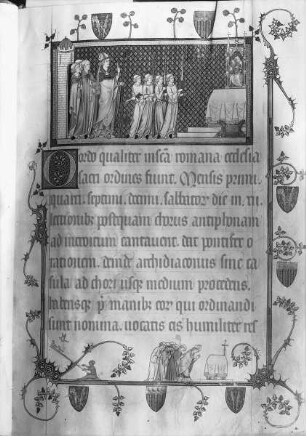 Ordo qualiter in sca romana ecclesia
sacri ordines fiunt. Mensis primi.
quarti. septimi. decimi. sabbator die in. xii
lectionibus postquam chorus antiphonam
ad introitum cantaverit. dat pontifex o
rationem. deinde archidiaconus sine ca
sula. ad chori usque medium procedens.
in hensque p manibz cor qui ordinandi
sunt nomina. vocatis eis humiliter res